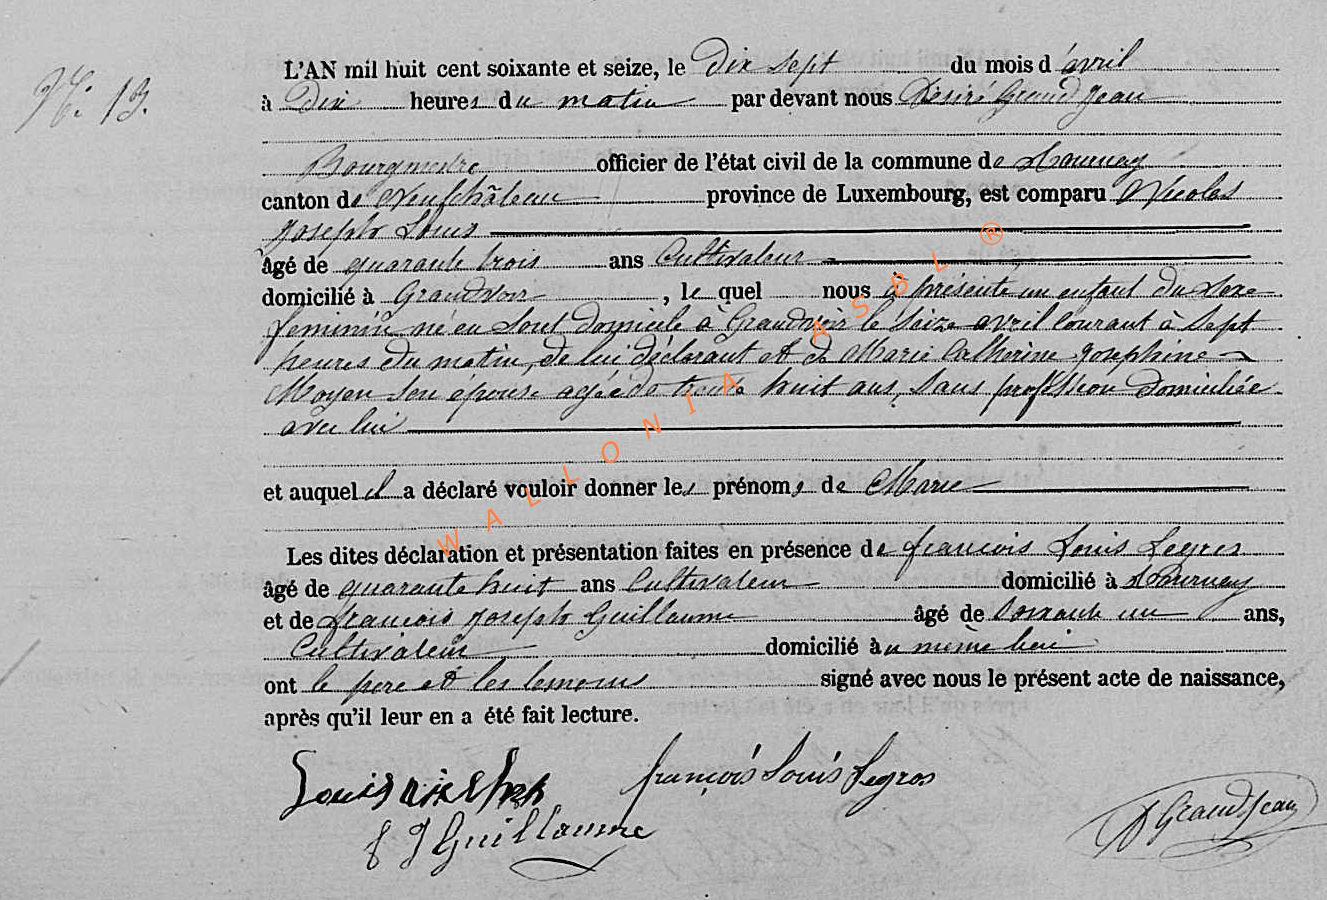 N: 13.
L'AN mil huit cent soixante et seize, le Dix sept du mois d'avril
à Dix heures du matin par devant nous Désiré Grand Jean
Bourgmestre officier de l'état civil de la commune de Tournay
canton de Neufchâteau province de Luxembourg, est comparu Nicolas
Joseph Louis
âgé de quarante trois ans Cultivateur
domicilié à Grandvoir, le quel nous à présenté un enfant du sexe
feminin né en Sont domicile à Grandvoir le Seize avril courant à Sept
heures du matin, de lui, déclarant et de Marie Catherine Josephine
Moyen son épouse agée de trente huit ans, Sans profession domiciliée
avec lui
et auquel il a déclaré vouloir donner les prénoms de Marie
Les dites déclaration et présentation faites en présence de francois Louis Legros
âgé de quarante huit ans Cultivateur domicilié à Tournay
et de francois Joseph Guillaume âgé de Soixante un ans,
Cultivateur domicilié au même lieu
ont le pere et les temoins signé avec nous le présent acte de naissance,
après qu'il leur en a été fait lecture.
Louis françois Louis Legros
f J Guillaume D GrandJean
WALLONIA ASBL ®